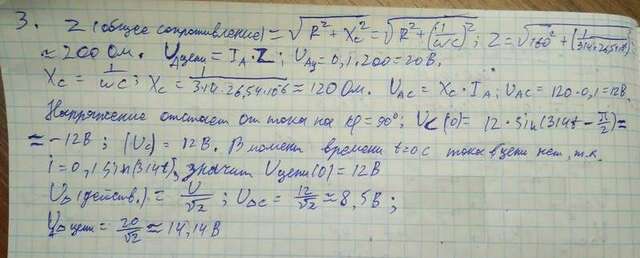 3. Z (общее сопротивление) = √(R² + Xc²) = √(R² + (1/ωC)²); Z = √(160² + (1/(314·26,54·10
≈ 200 Ом. UАцепи = IА·Z; UАц = 0,1·200 = 20В.
Xс = 1/ωC; Xс = 1/(314·26,54·10⁻⁶) ≈ 120 Ом. UАС = XС·IА; UАС = 120·0,1 = 12В.
Напряжение отстаёт от тока на φ = 90°; UС(0) = 12·sin(314t - π/2) =
≈ -12В; |Uс| = 12В. В момент времени t=0с тока в цепи нет, т.к.
i = 0,1 sin(314t), значит Uцепи(0) = 12В
UД (действ.) = U/√2; UДС = 12/√2 ≈ 8,5В;
UДцепи = 20/√2 ≈ 14,14В